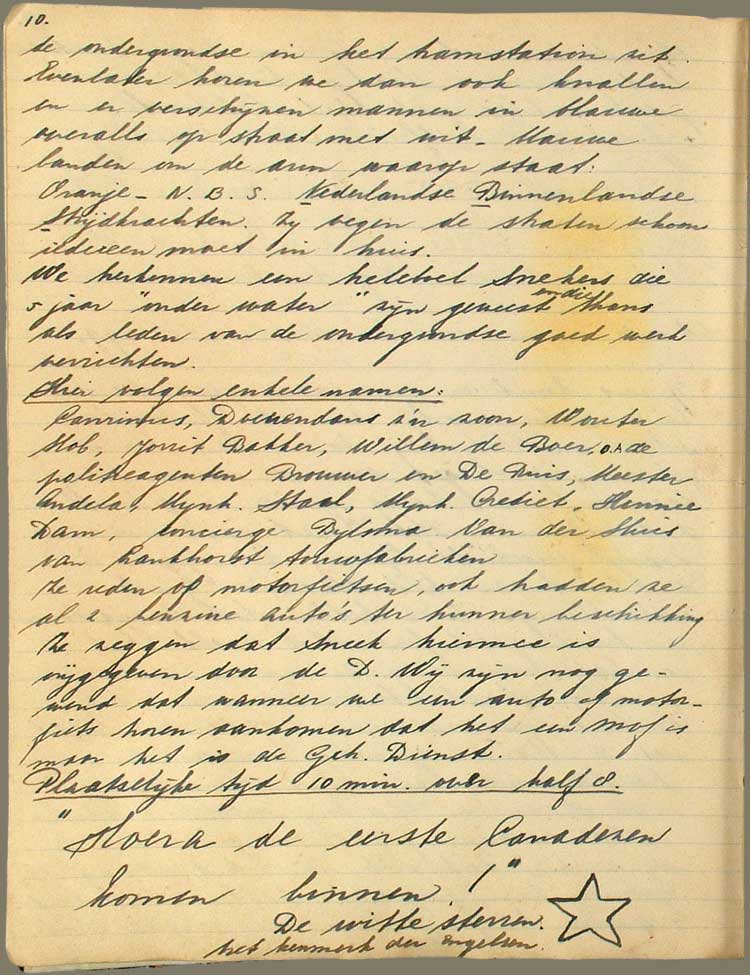 10.
de ondergrondse in het tramstation zit.
Evenlater horen we dan ook knallen
en er verschijnen mannen in blauwe
overalls op straat met wit-blauwe
banden om de arm waarop staat:
Oranje - N.B.S. Nederlandse Binnenlandse
Strijdkrachten. Zij vegen de straten schoon
iedereen moet in huis.
We herkennen een heleboel Snekers die
5 jaar "onder water" zijn geweest en die thans
als leden van de ondergrondse goed werk
verrichten.
Hier volgen enkele namen:
Canrinus, Doevendans z'n zoon, Wouter
Hob, Jorrit Bakker, Willem de Boer, o.a. de
politieagenten Brouwer en De Muis, Meester
Andela, Mynh. Staal, Mynh. Crediet, Hennie
Dam, concierge Bylsma Van der Sluis
van Lankhorst touwfabrieken
Ze reden op motorfietsen, ook hadden ze
al 2 benzine auto's ter hunner beschikking
Ze zeggen dat Sneek hiermee is
vrijgegeven door de D. Wij zijn nog ge-
wend dat wanneer we een auto of motor-
fiets horen aankomen dat het een mof is
maar het is de Geh. Dienst.
Plaatselijke tijd 10 min. over half 8.
"Hoera de eerste Canadezen
komen binnen!"
De witte sterren.
het kenmerk der Engelsen.